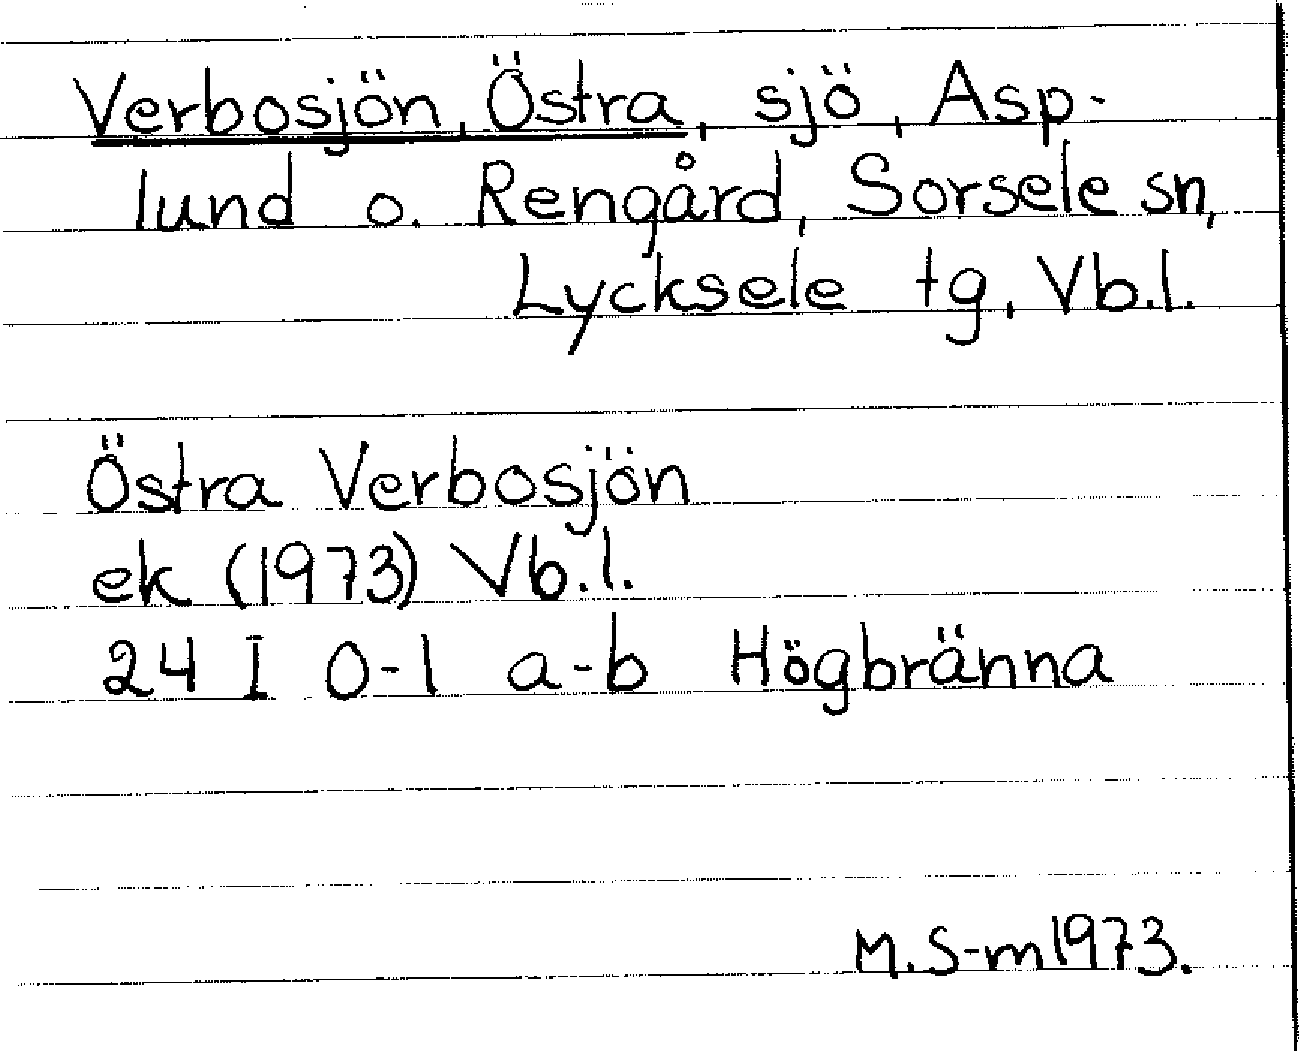 Verbosjön, Östra, sjö, Asp-
lund o. Rengård, Sorsele sn,
Lycksele tg, Vb.l.
Östra Verbosjön
ek (1973) Vb.l.
24 I 0-1 a-b Högbränna
M.S-m 1973.